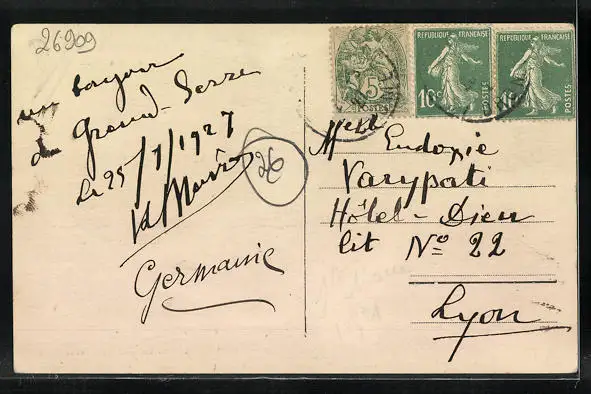 26909
un bonjour
de Grand-Serre
Le 25/7/1927
Germanie
26
5
POSTES
REPUBLIQUE FRANÇAISE
10c
POSTES
REPUBLIQUE FRANÇAISE
10c
POSTES
Melle Eudoxie
Varypati
Hôtel-Dieu
lit No 22
Lyon